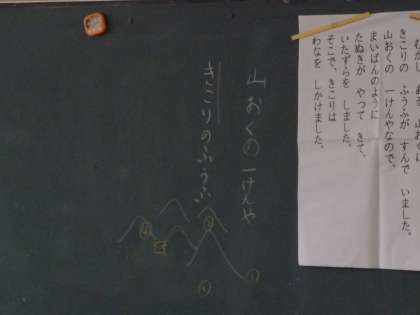 むかし ある 山おくに、
きこりの ふうふが すんで いました。
山おくの 一けんやなので、
まいばんのように
たぬきが やって きて、
いたずらを しました。
そこで、きこりは
わなを しかけました。
山おくの一けんや
きこりのふうふ